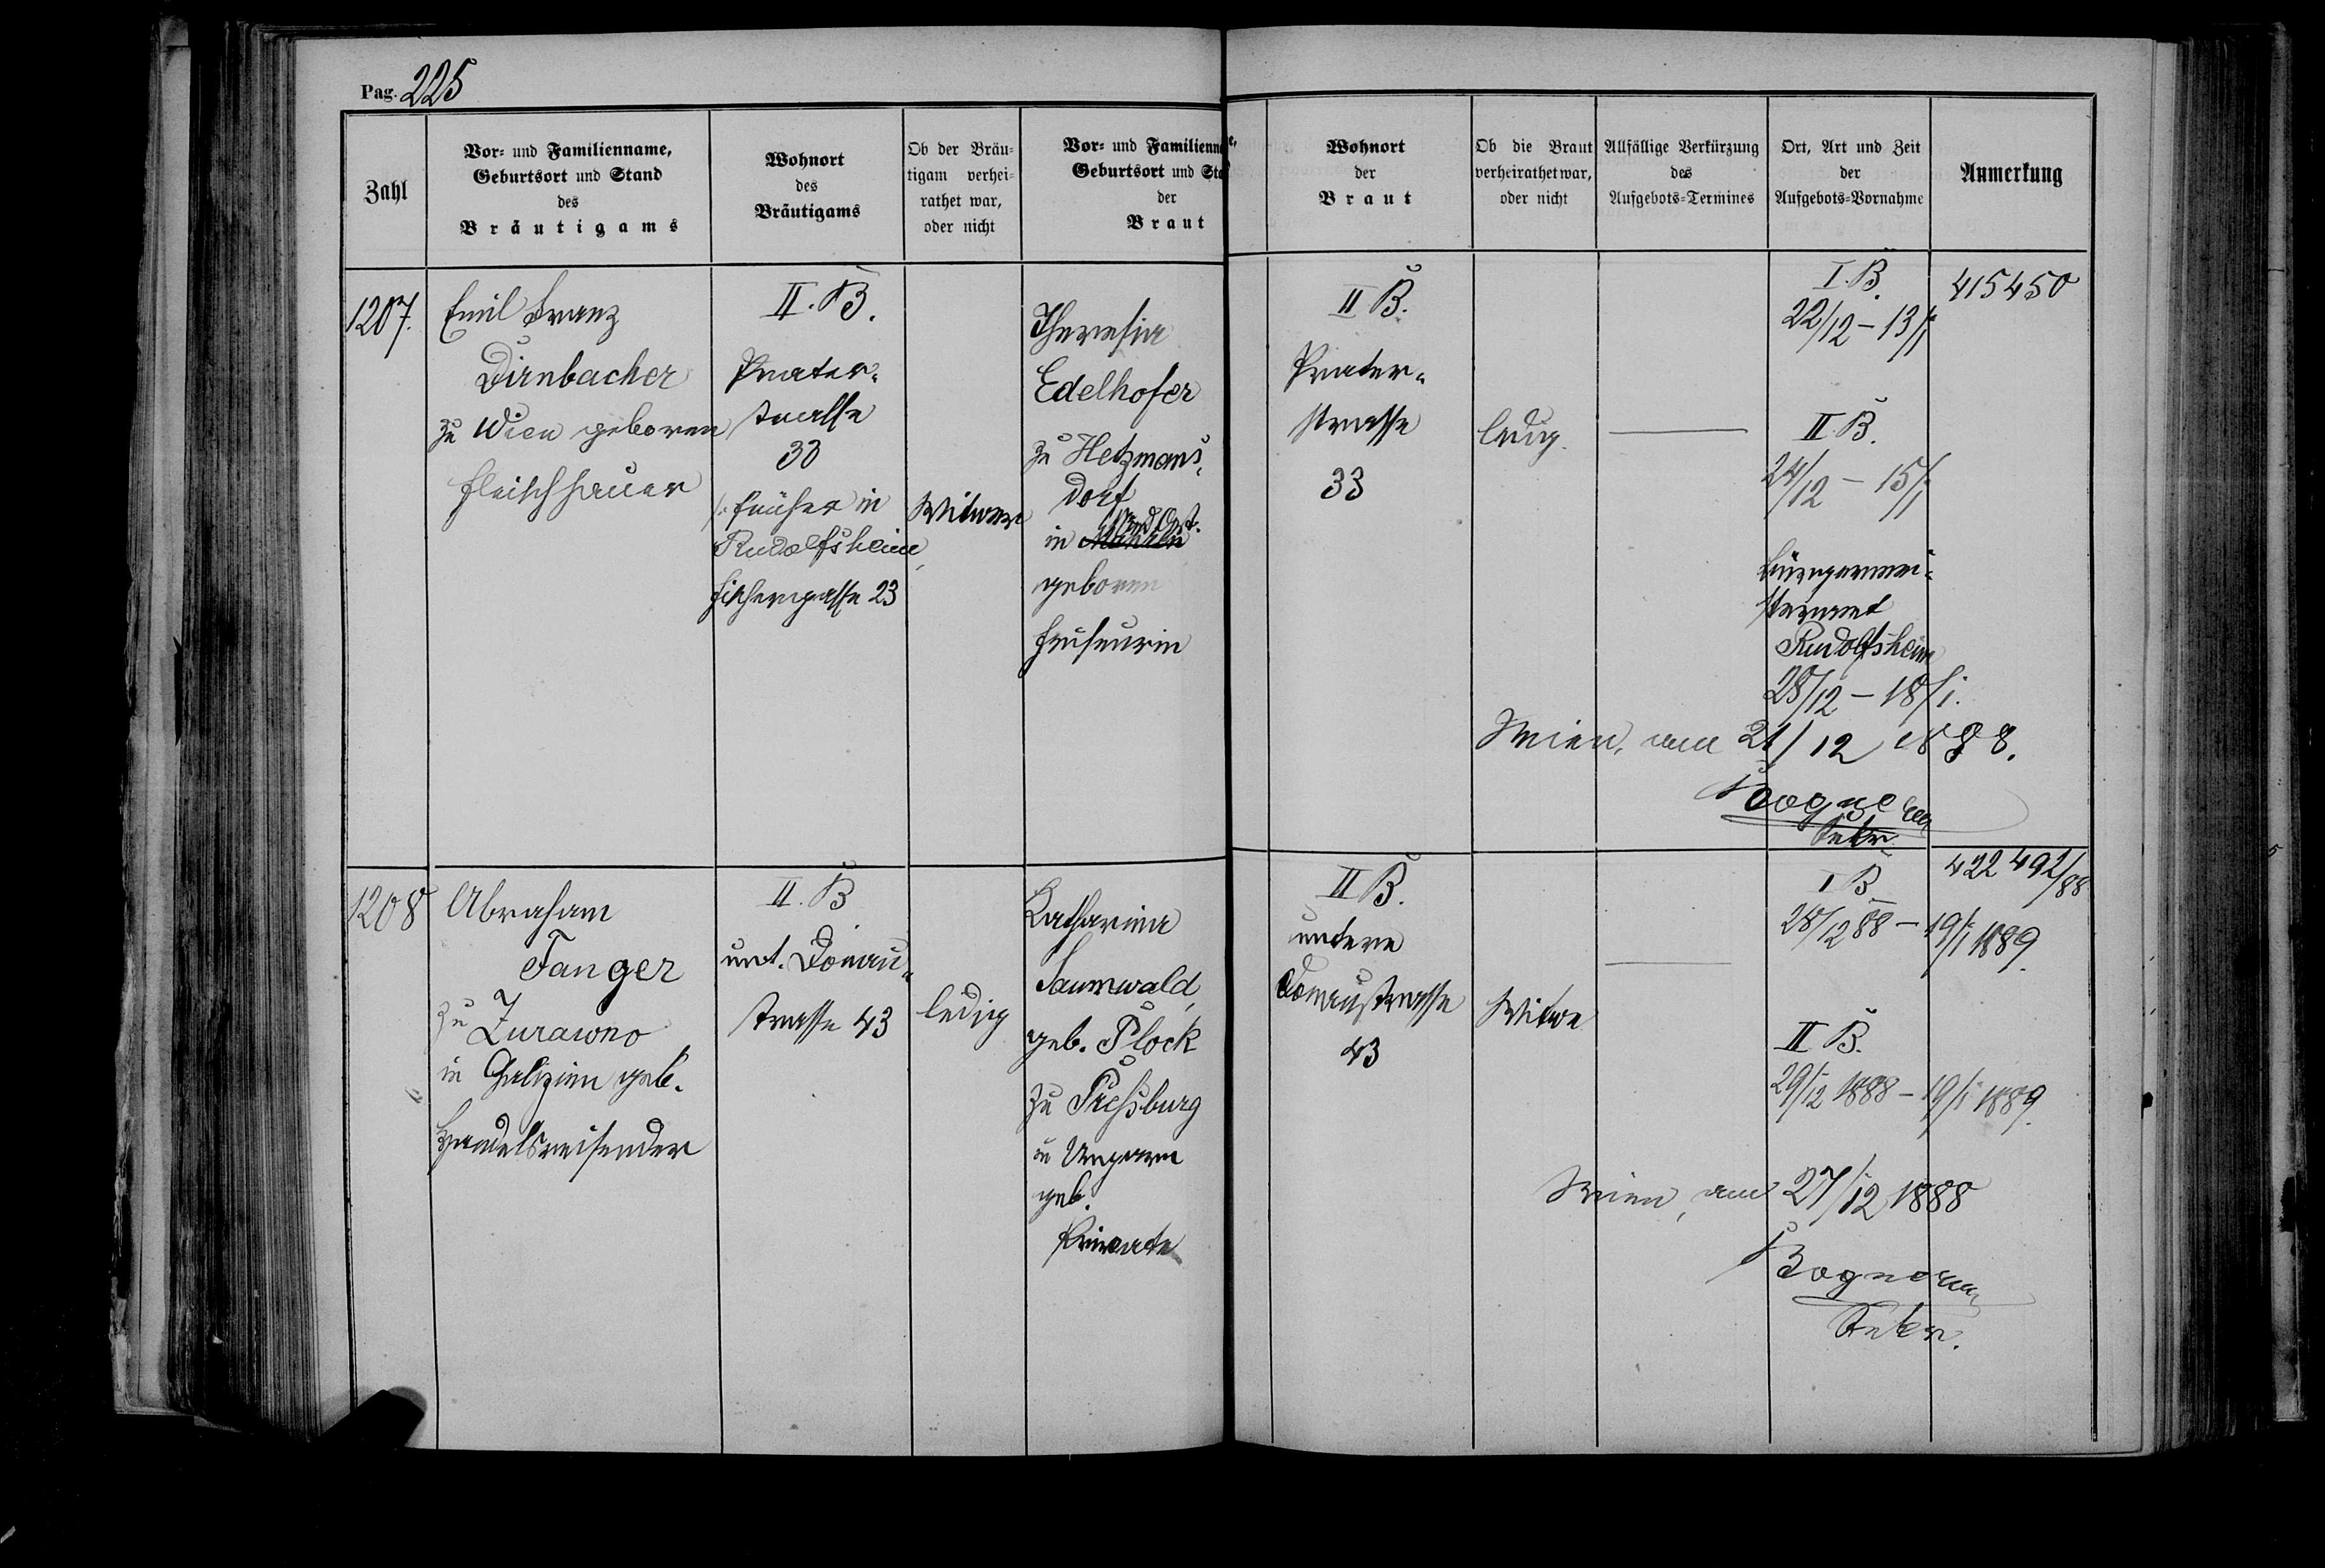 Pag. 225
Zahl
Vor- und Familienname,
Geburtsort und Stand
des
Bräutigams
Wohnort
des
Bräutigams
Ob der Bräu-
tigam verhei-
rathet war,
oder nicht
Vor- und Familienname,
Geburtsort und Sta
der
Braut
Wohnort
der
Braut
Ob die Braut
verheirathet war,
oder nicht
Allfällige Verkürzung
des
Aufgebots-Termines
Ort, Art und Zeit
der
Aufgebots-Vornahme
Anmerkung
1207.
Emil Franz
Dirnbacher
zu Wien geboren
Fleischhauer
II. B.
Prater-
strasse
33
früher in
Rudolfsheim,
Fischergasse 23
Witwer
Theresia
Edelhofer
zu Hetzmans-
dorf
Nied. Öst.
in Mähren
geboren
Friseurin
II B.
Prater-
strasse
33
ledig
I. B.
22/12 - 13/1
II. B.
24/12 - 15/1
Bürgermei-
steramt
Rudolfsheim
28/12 - 18/1.
415450
Wien, am 21/12 1888.
Sekr.
1208
Abraham
Tanger
zu Zurawno
in Galizien geb.
Handelsreisender
II. B
unt. Donau-
strasse 43
ledig
Katharina
Saumwald,
geb. Plock
zu Preßburg
in Ungarn
geb.
Private
II B.
untere
Donaustrasse
43
Witwe
I B
28/12 88 - 19/1 1889.
II B.
29/12 1888 - 19/1 1889.
422492/88
Wien, am 27/12 1888
Sekr.